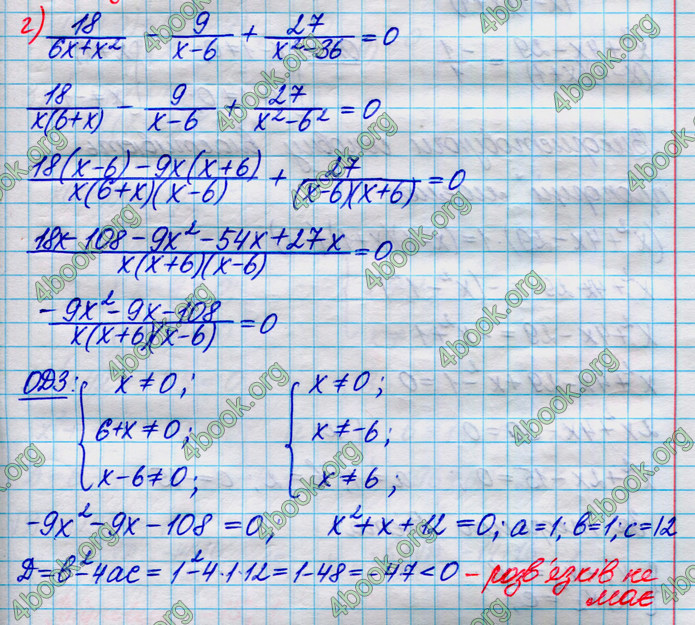 г) 18/(6x+x²) - 9/(x-6) + 27/(x²-36) = 0
18/(x(6+x)) - 9/(x-6) + 27/(x²-6²) = 0
(18(x-6)-9x(x+6))/(x(6+x)(x-6)) + 27/((x-6)(x+6)) = 0
(18x-108-9x²-54x+27x)/(x(x+6)(x-6)) = 0
(-9x²-9x-108)/(x(x+6)(x-6)) = 0
ОДЗ: { x≠0; { x≠0;
6+x≠0; x≠-6;
x-6≠0; x≠6;
-9x²-9x-108=0; x²+x+12=0; a=1; b=1; c=12
Д=b²-4ac=1²-4·1·12=1-48=-47<0 - розв'язків не
має
4book.org